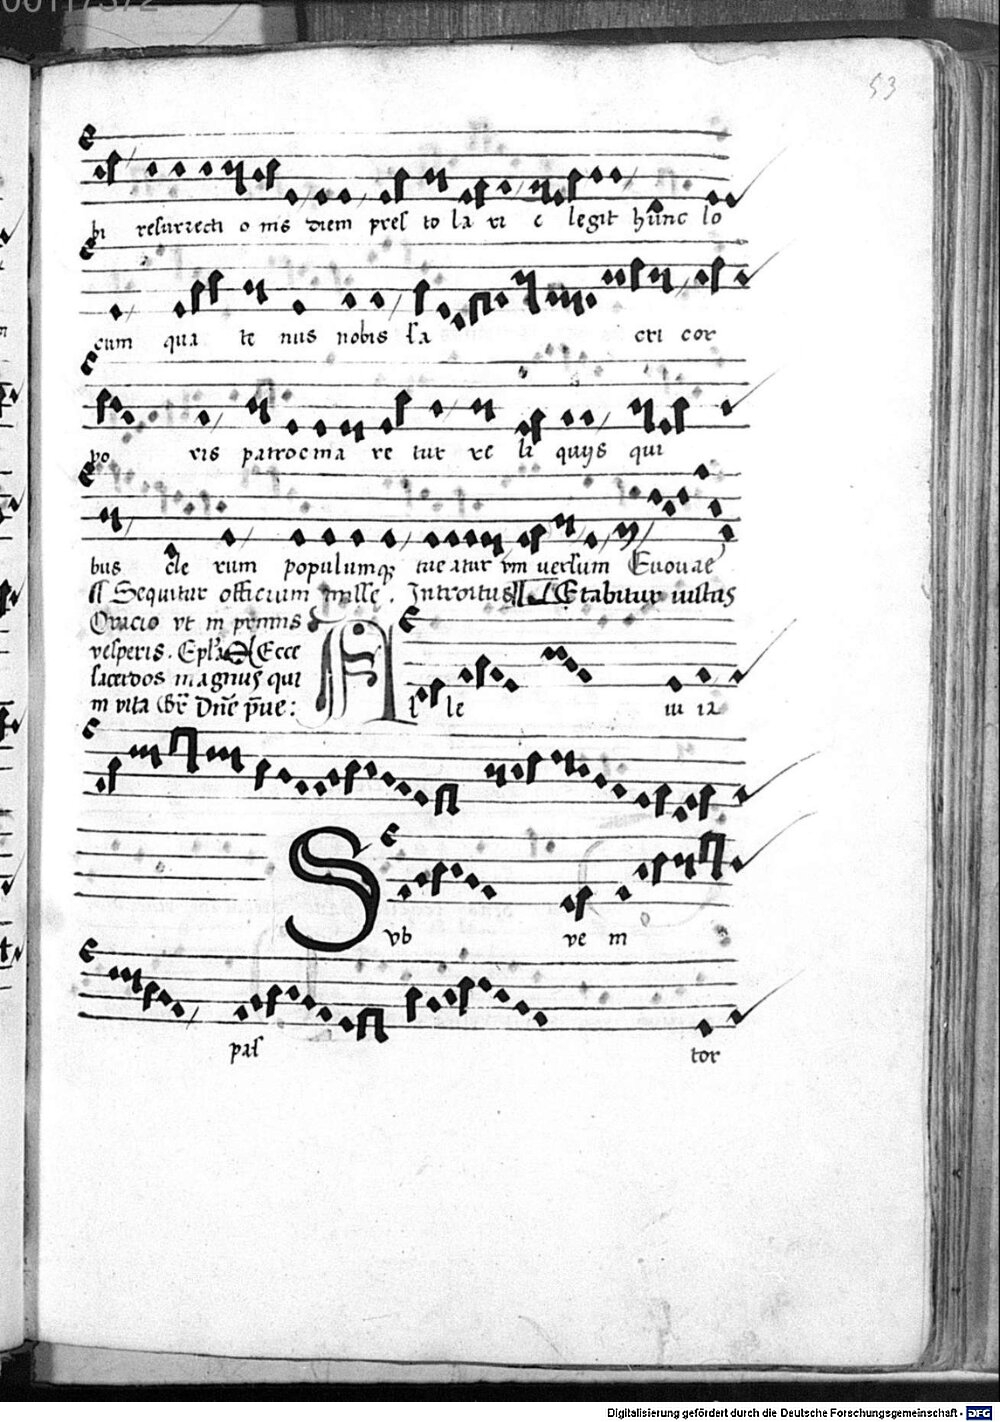 53
bi resurrecti o nis diem pres to la ri e legit hunc lo
cum qua te nus nobis sa cri cor
po ris patrocinia re tur re li quijs qui
bus cle rum populumq tue atur vni versum Euouae
Sequitur officium misse. Introitus Letabitur iustus
Oracio vt in primis
vesperis. Ecce
sacerdos magnus qui
in vita
Al le lu ia
Sub ve ni
pas tor
Digitalisierung gefördert durch die Deutsche Forschungsgemeinschaft - DFG